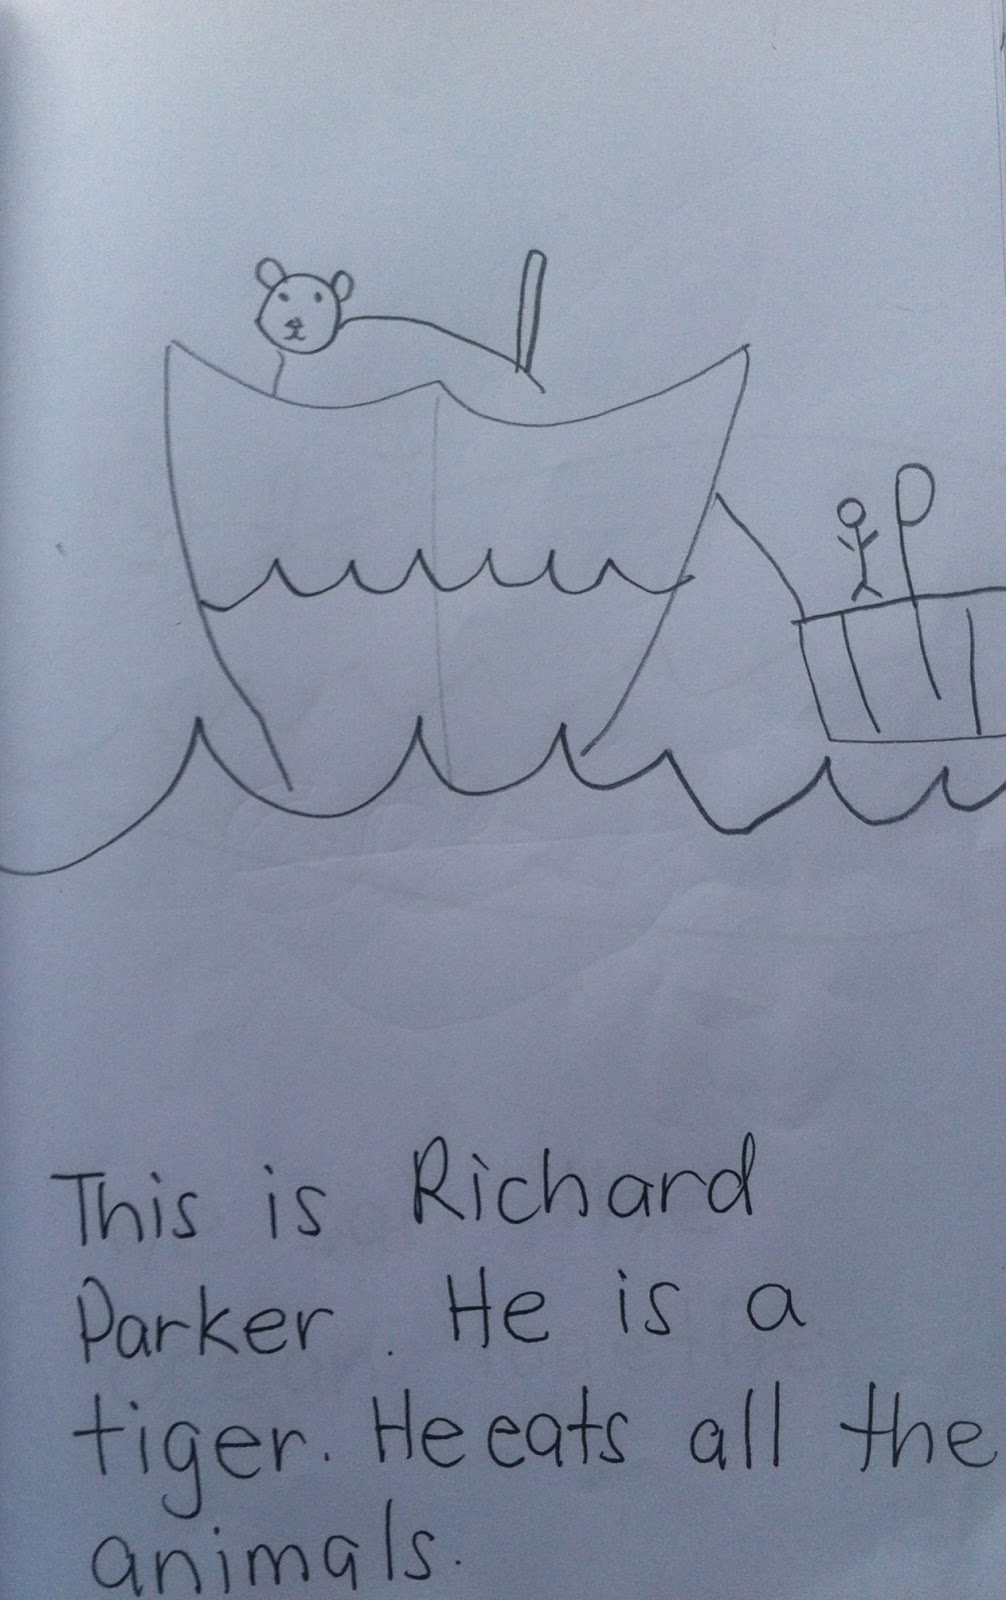 This is Richard
Parker. He is a
tiger. He eats all the
animals.